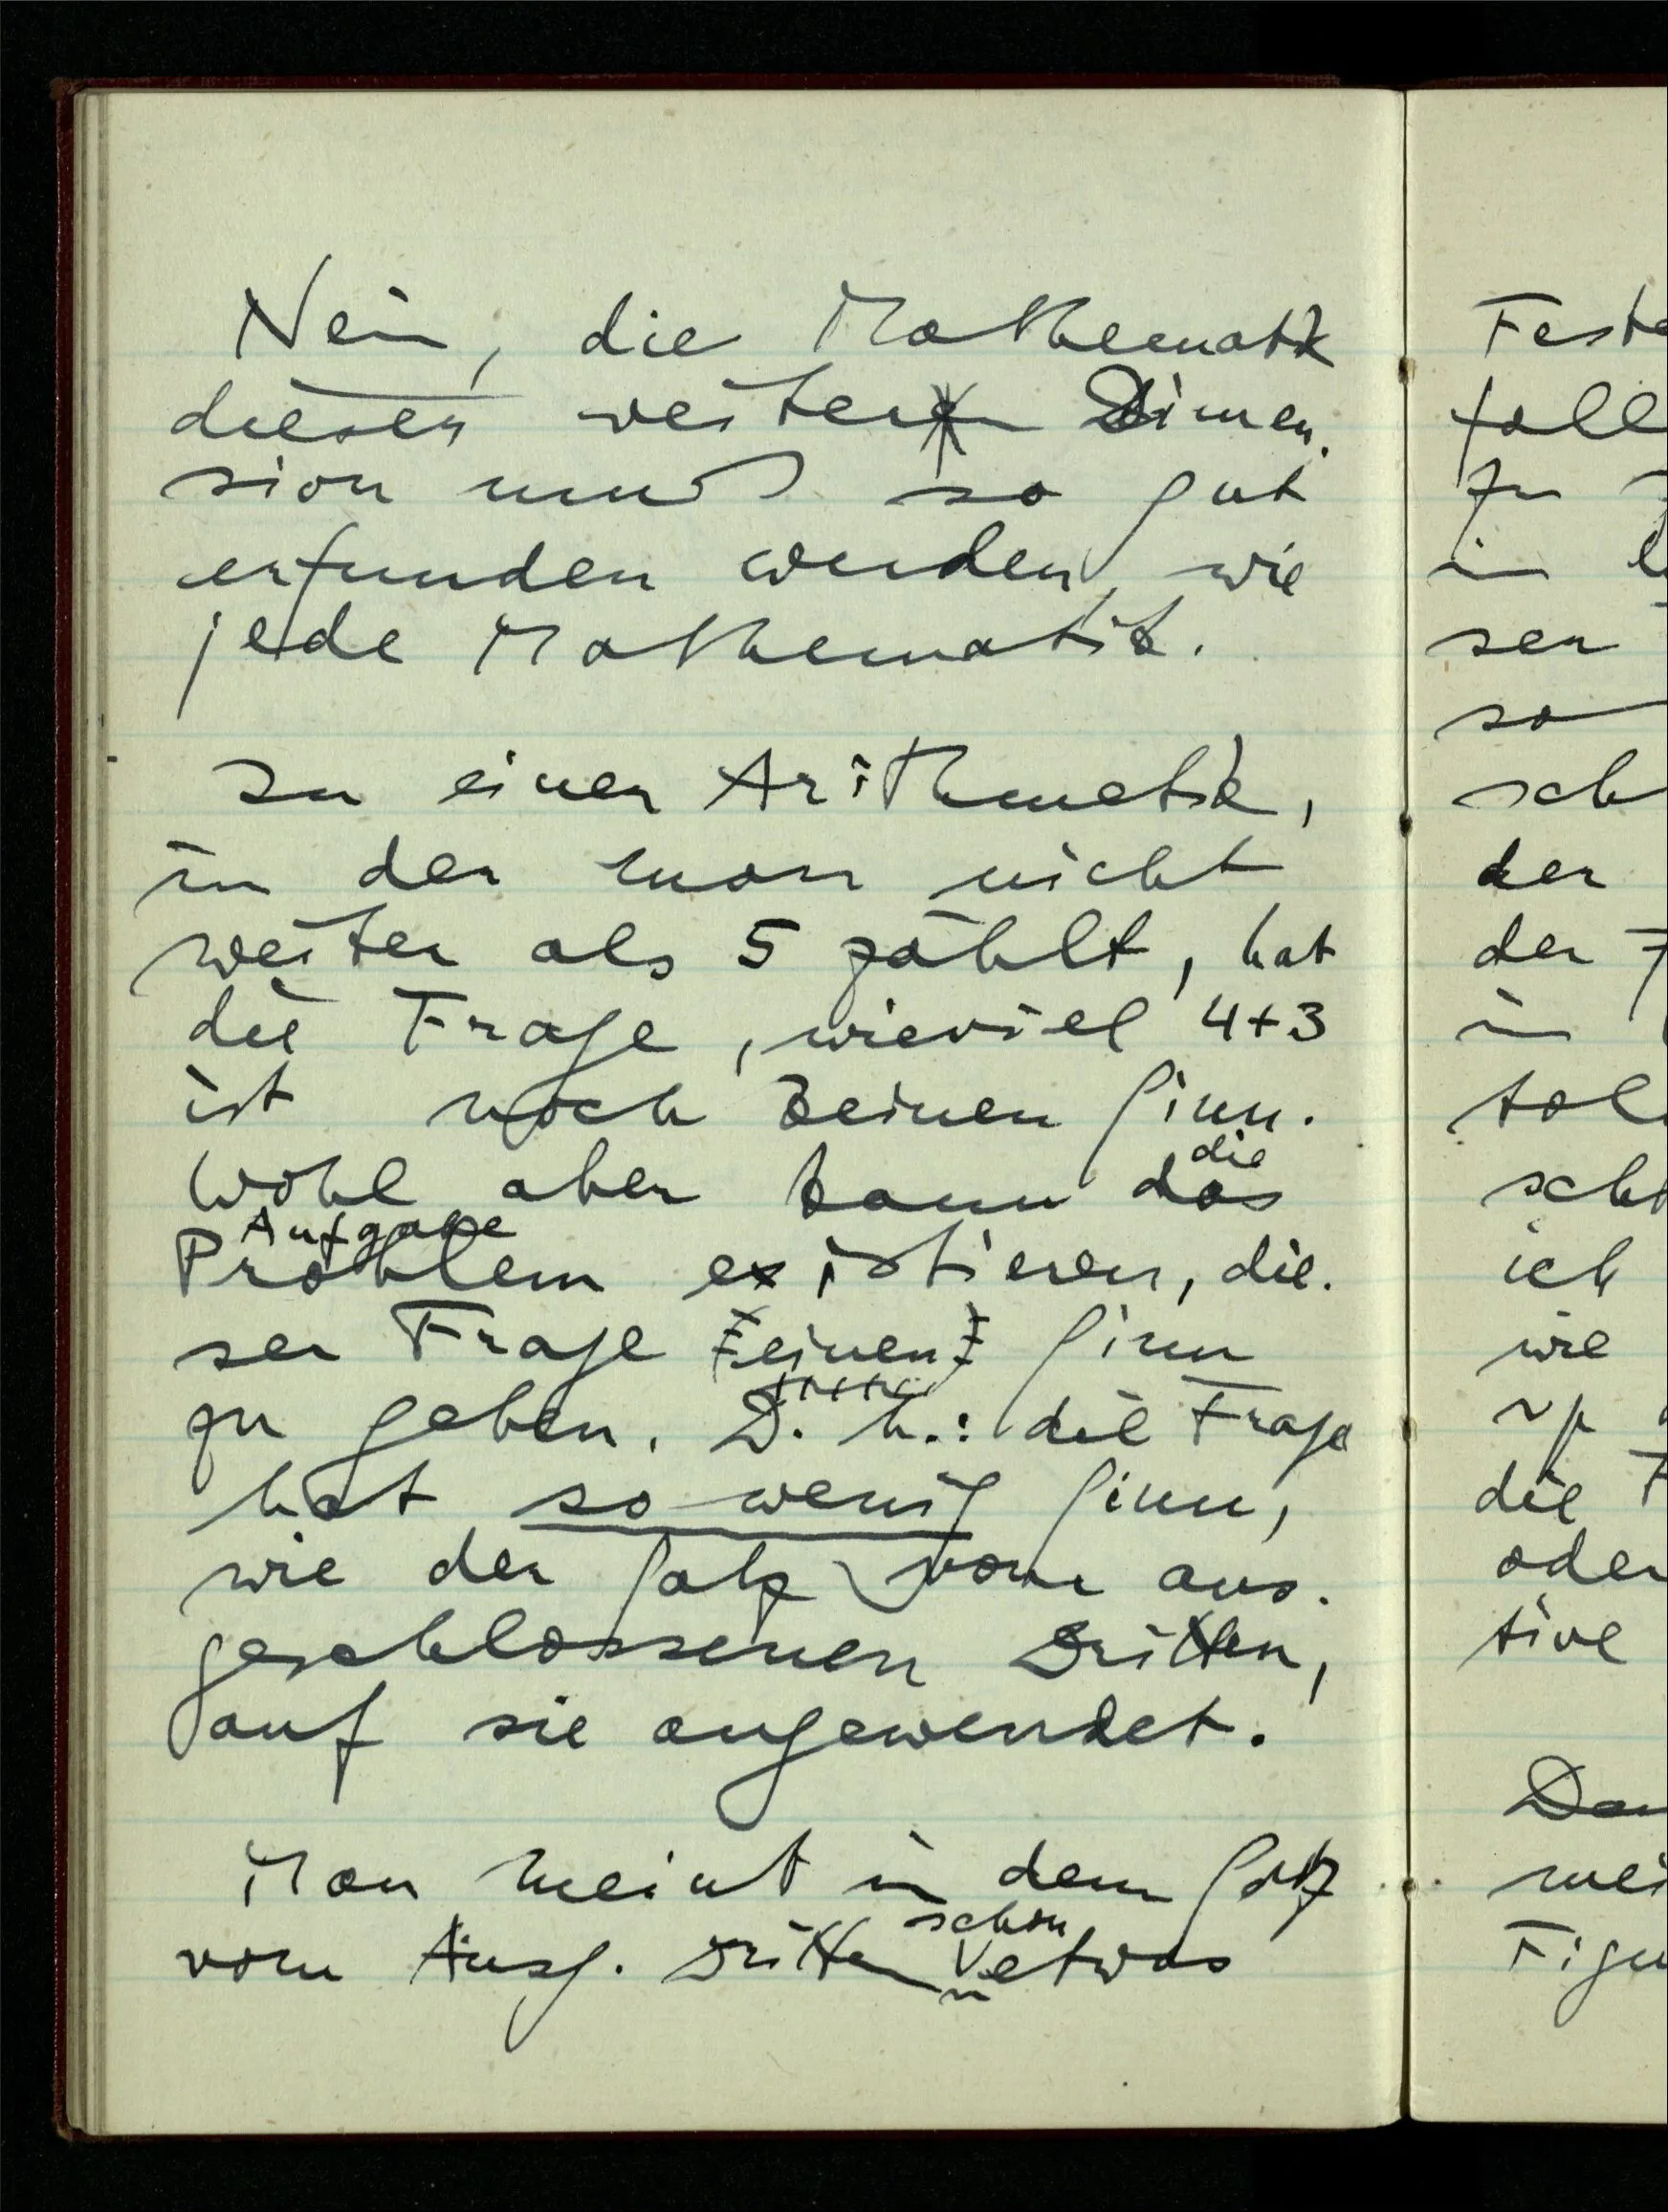 Nein, die Mathematik
dieser weiteren Dimen-
sion muß so gut
erfunden werden, wie
jede Mathematik.
In einer Arithmetik,
in der man nicht
weiter als 5 zählt, hat
die Frage, wieviel 4+3
ist noch keinen Sinn.
die
Wohl aber kann das
Aufgabe
Problem existieren, die-
ser Frage einen Sinn
zu geben. D. h.: die Frage
hat so wenig Sinn,
wie der Satz vom aus-
geschlossenen Dritten,
auf sie angewendet.
Man meint in dem Satz
schon
vom Ausg. Dritten etwas
Feste
der
der
in
sch
ich
wie
die F
oder
tive
Figu